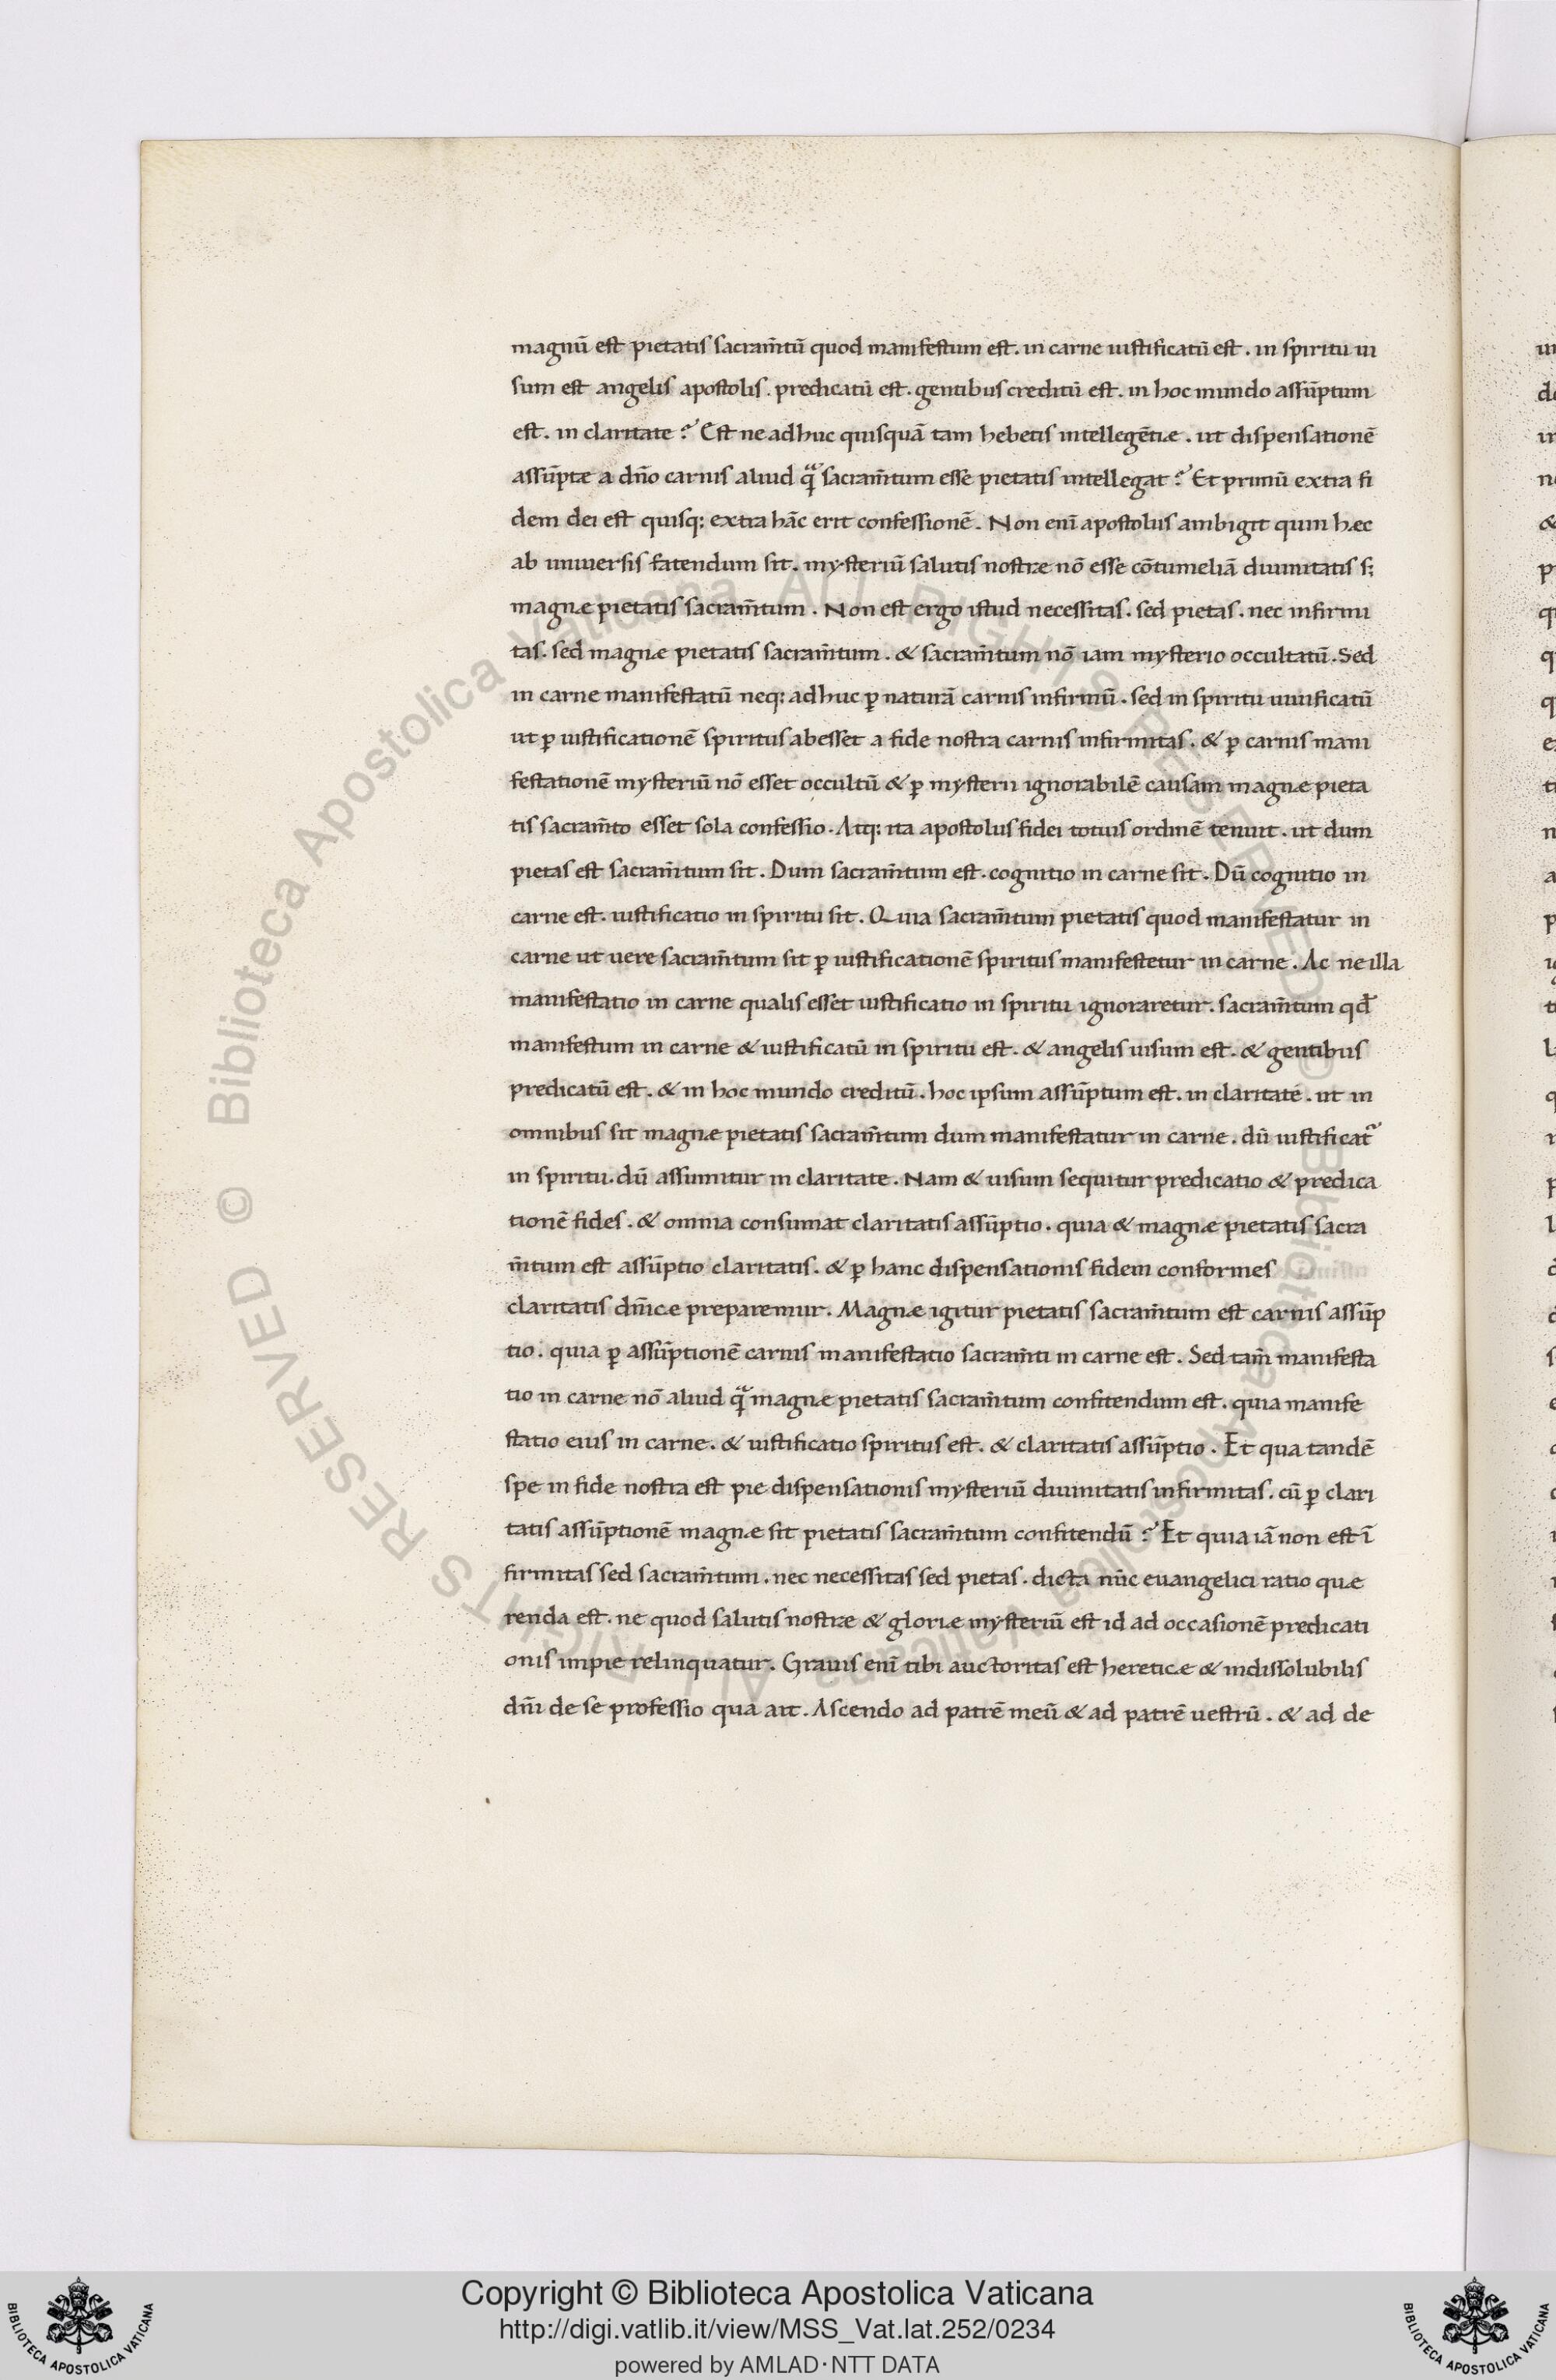 magnū est pietatis sacram̄tū quod manifestum est. in carne iustificatū est. in spiritu ui
sum est angelis apostolis. predicatū est. gentibus creditū est. in hoc mundo assūptum
est. in claritate? Est ne adhuc quisquā tam hebetis intellegētiæ. ut dispensationē
assūptæ a dn̄o carnis aliud quā sacram̄tum esse pietatis intellegat? Et primū extra fi
dem dei est quisq; extra hāc erit confessionē. Non enī apostolus ambigit quin hæc
ab uniuersis fatendum sit. mysteriū salutis nostræ nō esse cōtumeliā diuinitatis s;
magnæ pietatis sacram̄tum. Non est ergo istud necessitas. sed pietas. nec infirmi
tas. sed magnæ pietatis sacram̄tum. & sacram̄tum nō iam mysterio occultatū. Sed
in carne manifestatū neq; adhuc ꝑ naturā carnis infirmū. sed in spiritu uiuificatū
ut ꝑ iustificationē spiritus abesset a fide nostra carnis infirmitas. & ꝑ carnis mani
festationē mysteriū nō esset occultū & ꝑ mysterii ignorabilē causam magnæ pieta
tis sacram̄to esset sola confessio. Atq; ita apostolus fidei totius ordinē tenuit. ut dum
pietas est sacram̄tum sit. Dum sacram̄tum est. cognitio in carne sit. Dū cognitio in
carne est. iustificatio in spiritu sit. Quia sacram̄tum pietatis quod manifestatur in
carne ut uere sacram̄tum sit ꝑ iustificationē spiritus manifestetur in carne. Ac ne illa
manifestatio in carne qualis esset iustificatio in spiritu ignoraretur. sacram̄tum qđ
manifestum in carne & iustificatū in spiritu est. & angelis uisum est. & gentibus
predicatū est. & in hoc mundo creditū. hoc ipsum assūptum est. in claritate. ut in
omnibus sit magnæ pietatis sacram̄tum dum manifestatur in carne. dū iustificat᷑
in spiritu. dū assumitur in claritate. Nam & uisum sequitur predicatio & predica
tionē fides. & omnia consumat claritatis assūptio. quia & magnæ pietatis sacra
m̄tum est assūptio claritatis. & ꝑ hanc dispensationis fidem conformes
claritatis dn̄icæ preparemur. Magnæ igitur pietatis sacram̄tum est carnis assūp
tio. quia ꝑ assūptionē carnis manifestatio sacram̄ti in carne est. Sed tam̄ manifesta
tio in carne nō aliud quā magnæ pietatis sacram̄tum confitendum est. quia manife
statio eius in carne. & iustificatio spiritus est. & claritatis assūptio. Et qua tandē
spe in fide nostra est pie dispensationis mysteriū diuinitatis infirmitas. cū ꝑ clari
tatis assūptionē magnæ sit pietatis sacram̄tum confitendū? Et quia iā non est ī
firmitas sed sacram̄tum. nec necessitas sed pietas. dicta nūc euangelici ratio quæ
renda est. ne quod salutis nostræ & gloriæ mysteriū est id ad occasionē predicati
onis impie relinquatur. Grauis enī tibi auctoritas est hereticæ & indissolubilis
dn̄i de se professio qua ait. Ascendo ad patrē meū & ad patrē uestrū. & ad de
© Biblioteca Apostolica Vaticana ALL RIGHTS RESERVED
© Biblioteca Apostolica Vaticana ALL RIGHTS RESERVED
Copyright © Biblioteca Apostolica Vaticana
http://digi.vatlib.it/view/MSS_Vat.lat.252/0234
powered by AMLAD·NTT DATA
BIBLIOTECA APOSTOLICA VATICANA
BIBLIOTECA APOSTOLICA VATICANA